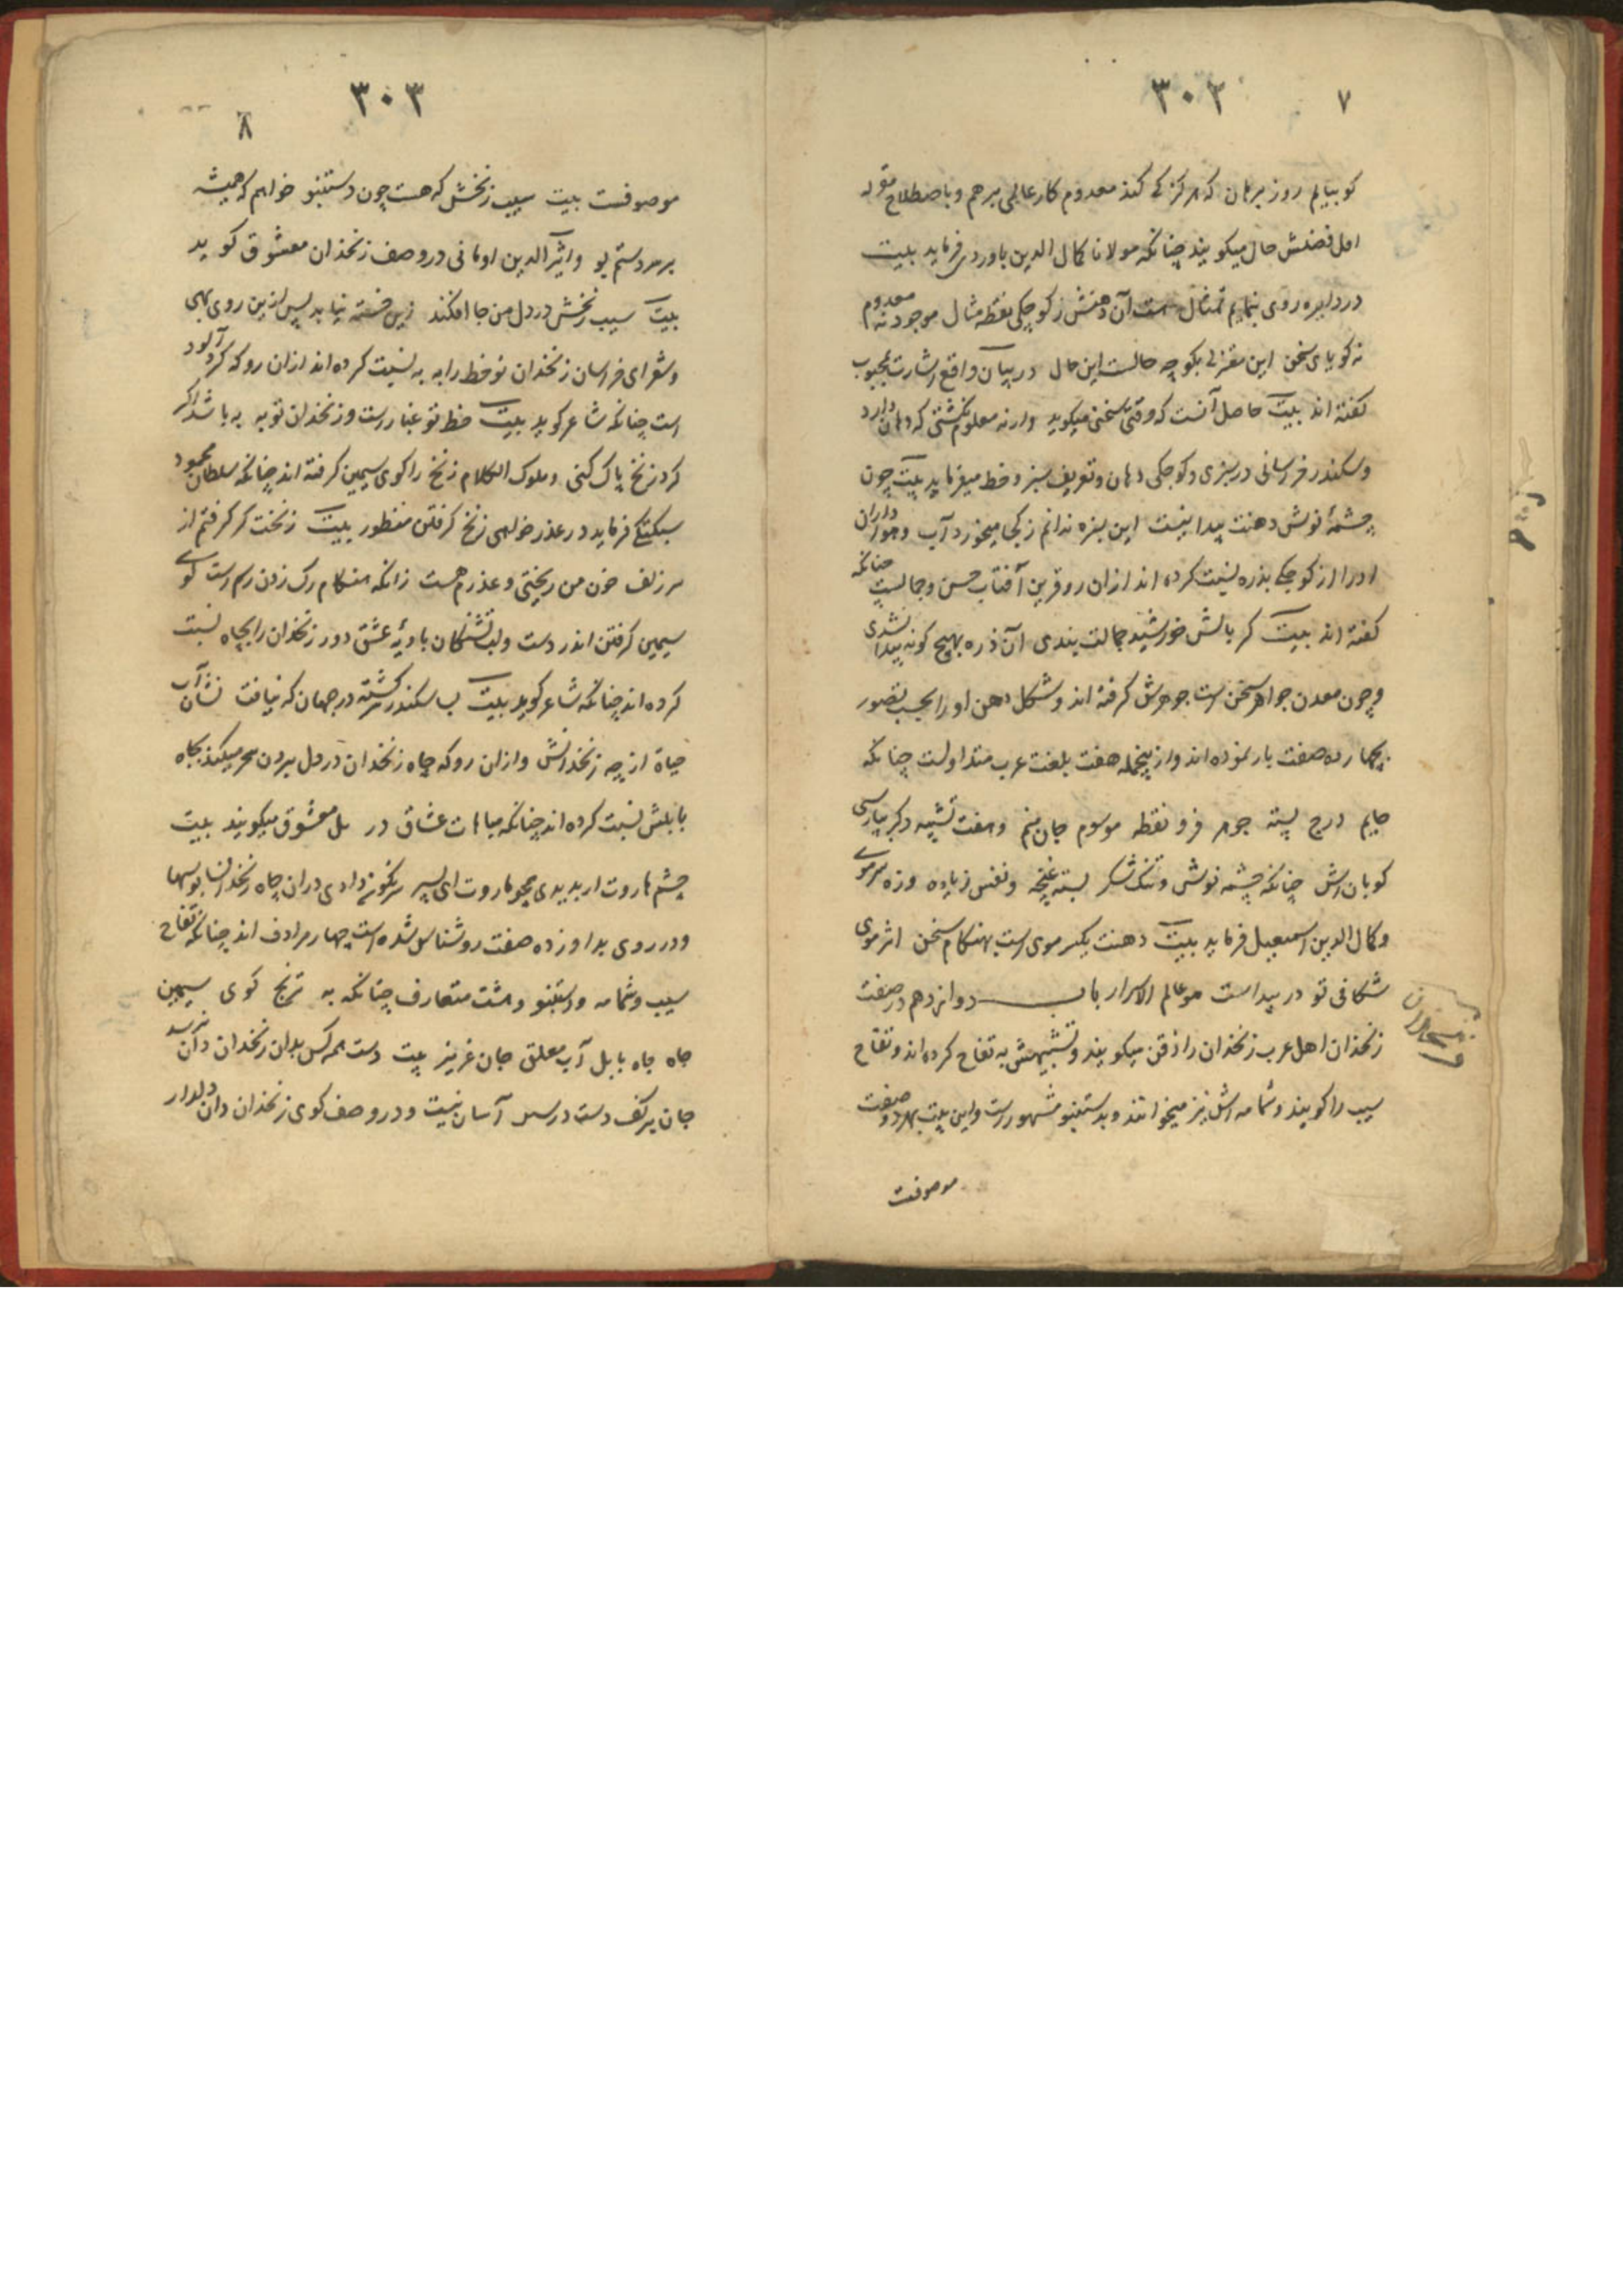 ۷
۳۰۲
کو بیایم روز برهان که هرگز کے کند معدوم کار عالمی برهم و باصطلاح مقوله
اهل فضلش حال میکویند چنانکه مولانا کمال الدین باوردی فرماید بیت
در دایره روی تمثال است آن دهنش ز کوچکی نقطه مثال موجود نه معدوم
نه کویای سخن این بکو چه حالست این حال در بیان واقع اشارت بمحبوب
کفته اند بیت حاصل آنست که وقتی سخنی میکوید وارنه معلوم نکشتی که دهان دارد
و سکندر خراسانی در سبزی و کوچکی دهان و تعریف سبزه خط میفرماید بیت چون
چشمهٔ نوش دهنت پیدا نیست این سبزه ندانم ز کجا میخورد آب و هواداران
او را از کوچکے بذره نسبت کرده اند ازان رو قرین آفتاب حسن و جمالست چنانکه
کفته اند بیت کر بالش خورشید جمالت بندی آن ذره بهیچ کونه پیدا نشدی
و چون معدن جواهر سخن است جوهرش کرفته اند و شکل دهن او را بحسب تصور
بچهارده صفت باز نموده اند و از پنجمله هفت بلغت عرب متداولست چنانکه
درج پسته جوهر فرو نقطه موسوم جان میم و هفت تشبیه دکر پارسی
کویان اش چنانکه چشمه نوش و تنک شکر پسته غنچه و نفس زیاده و ذره سرموے
و کمال الدین اسمعیل فرماید بیت دهنت یکسر موی است بهنکام سخن اثر موی
شکافی تو در پیداست هو عالم الاسرار باب دوازدهم در صفت
زنخدان اهل عرب زنخدان را ذقن میکویند و تشبیهش به تفاح کرده اند و تفاح
سیب را کویند و شمامه اش نیز میخوانند و بدستنبو مشهور است و این بیت بهر دو صفت
موصوفست
۳۰۳
۸
موصوفست بیت سیب زنخش که هست چون دستنبو خواهم که همیشه
بر سر دستم بو و اثیر الدین اومانی در وصف زنخدان معشوق کوید
بیت سیب زنخش در دل من جا افکند زین خسته نیاید پس ازین روی بهی
و شعرای خراسان زنخدان نو خط را به به نسبت کرده اند ازان رو که کرد آلود
است چنانکه شاعر کوید بیت خط تو غبار است و زنخدان تو به به باشد اکر
کرد زنخ پاک کنی و ملوک الکلام زنخ را کوی سیمین کرفته اند چنانکه سلطان محمود
سبکتکین فرماید در عذر خواهی زنخ کرفتن منظور بیت زنخت کر کرفتم از
سر زلف خون من ریختی و عذرم هست زانکه هنکام رک زدن رسم است کوے
سیمین کرفتن اندر دست و لب تشنکان بادیهٔ عشق دور زنخدان را بچاه نسبت
کرده اند چنانکه شاعر کوید بیت لب سکندر کشته در جهان که نیافت نشان آب
حیاة از چه زنخدانش و ازان رو که چاه زنخدان در دل بردن سحر میکند بچاه
بابلش نسبت کرده اند چنانکه عشاق در معشوق میکویند بیت
چشم هاروت ار بدیدی همچو ماروت ای پسر سرنکونی دادی دران چاه زنخدان بوسها
و در روی بد او زده صفت روشناس شده است چهار مرادف اند چنانکه تفاح
سیب و شمامه و دستنبو و هشت متعارف چنانکه به ترنج کوی سیمین
چاه چاه بابل آب معلق جان عزیز بیت دست همه کس بدان زنخدان نرسد
جان بر کف دست در سر آسان نیست و در وصف کوی زنخدان دلدار